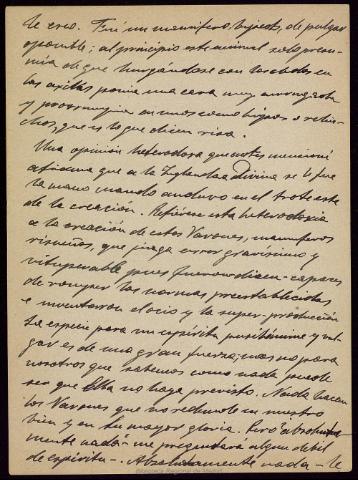 le creo. Fué un mamífero, bípedo, de pulgar
oponible; al principio este animal solo preu-
mía de que hurgándose con los dedos en
las axilas ponía una cara muy arrugada
y prorrumpía en unos como hipos o relin-
chos, que es lo que dicen risa.
Una opinión heterodoxa que antes mencioné
afirma que a la Inglandaa Divina se le fue
la mano cuando anduvo en el trote este
de la creación. Refiérese esta heterodoxia
a la creación de estos Varones, mamíferos
risueños, que juzga error gravísimo y
vituperable pues fueron dicen- capaces
de romper las normas preestablecidas
e inventaron el ocio y la super-producción
La especie para un espíritu pusilánime y vul-
gar es de una gran fuerza, mas no para
nosotros que sabemos como nada puede
ser que Ella no haya previsto. Nada hacen
los Varones que no redunde en nuestro
bien y en su mayor gloria. Pero "absoluta-
mente nada"- me preguntará algun debil
de espíritu -. Absolutamente nada - le